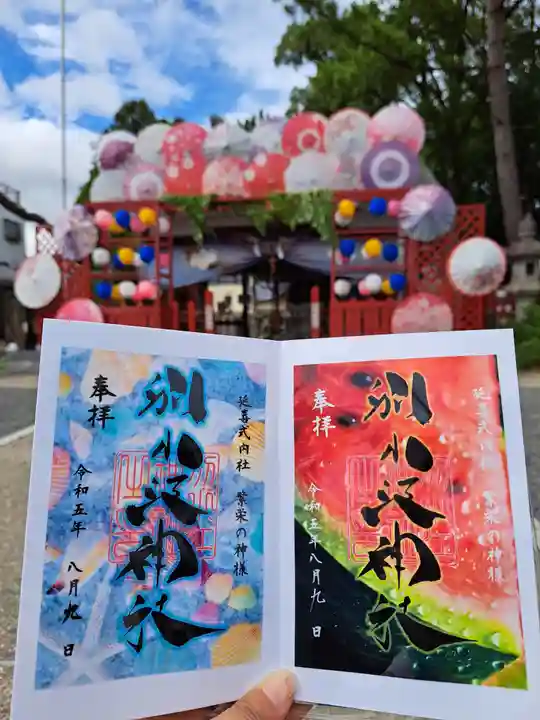 奉拝
別小江神社
延喜式内社 繁栄の神様
令和五年 八月九日
奉拝
別小江神社
延喜式内社 繁栄の神様
令和五年八月九日